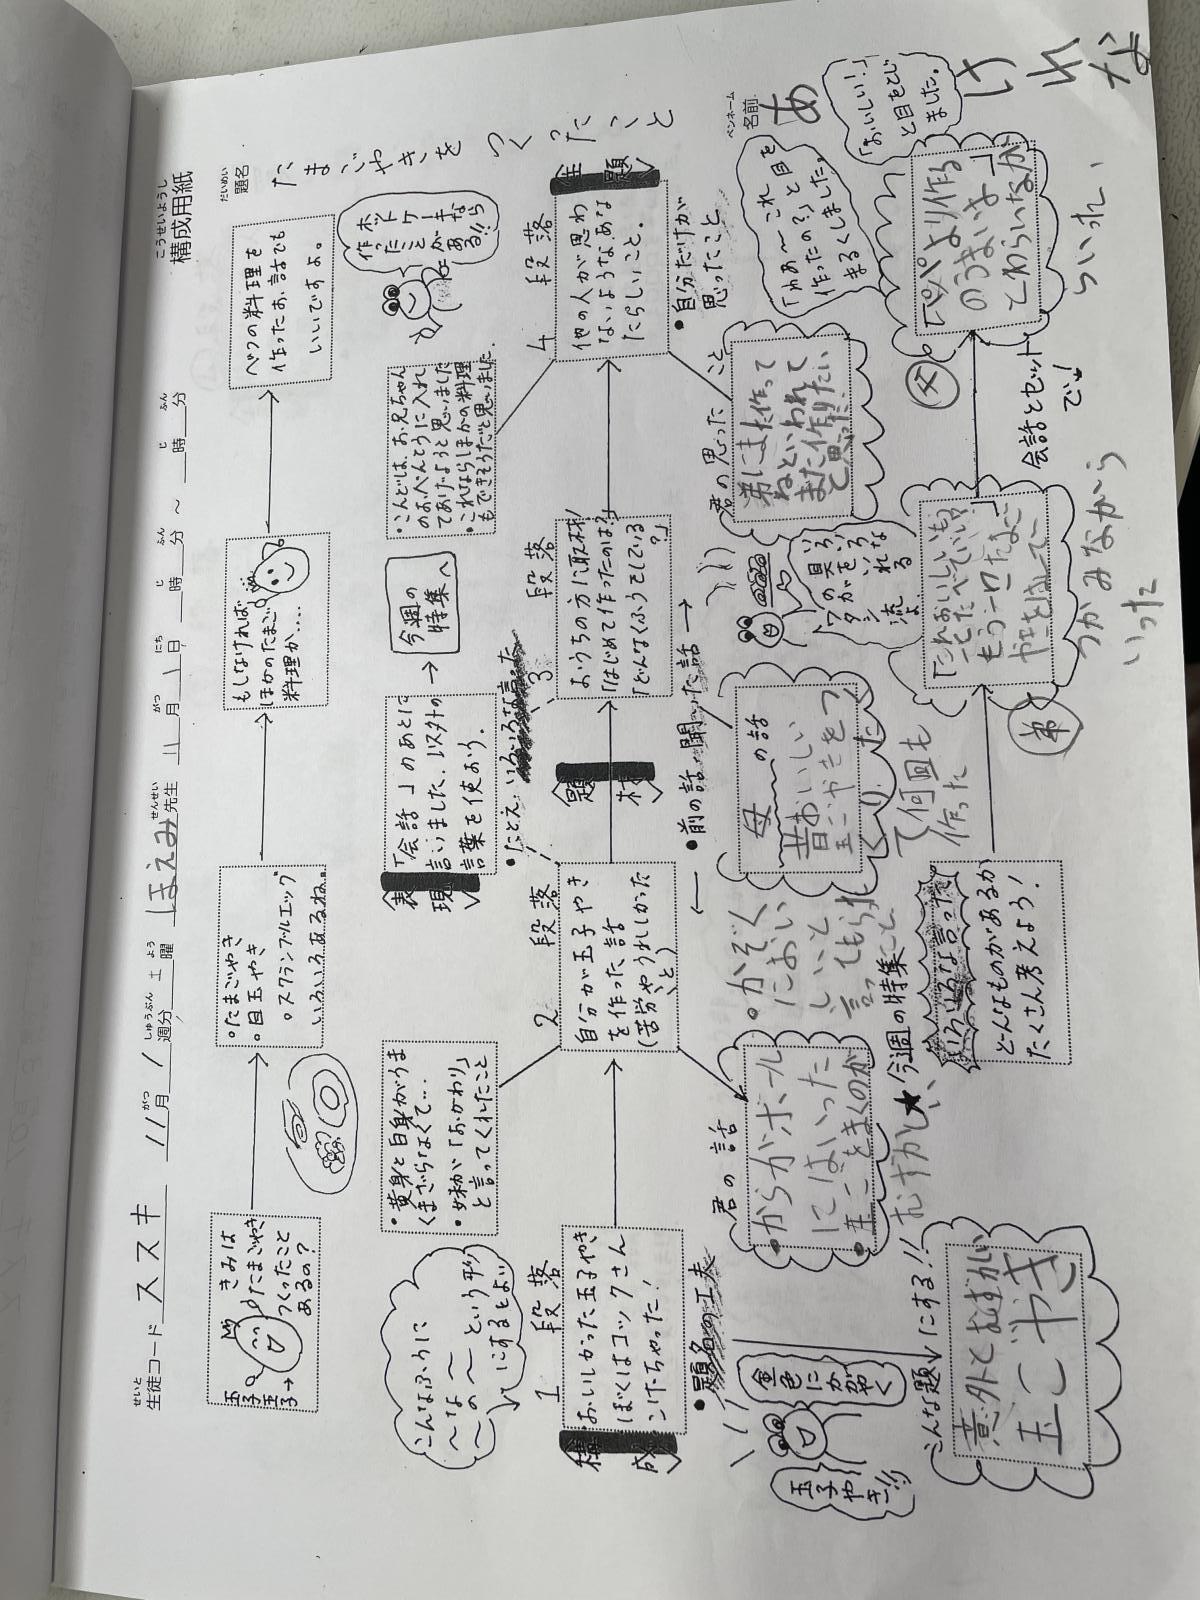 こうせいようし
構成用紙
せいと
生徒コード ススキ 11月 1週分 土曜 ほえみ先生 11月1日 時 分 〜 時 分
がつ しゅうぶん よう せんせい がつ にち じ ふん じ ふん
だいめい
題名
たまごやきを
つくったこと
ペンネーム
名前
あ
けれな
玉子
玉子→
きみは
たまごやき
つくったこと
あるの?
・たまごやき
・目玉やき
・スクランブルエッグ
いろいろあるね。
もしなければ
ほかのたまご
料理か....
べつの料理を
作ったお話でも
いいですよ。
ホットケーキなら
作ったことが
ある!!
こんなふうに
〜な〜という形
〜の〜
にするとよい
・黄身と白身がうま
くまざらなくて…
・妹が「おかわり」
と言ってくれたこと
表現
「会話」のあとに
言いました、以外の
言葉を使おう。
・たとえ
いろいろな言った
今週の
特集へ
・こんどは、お兄ちゃん
のおべんとうに入れ
てあげようと思いました
・これならほかの料理
もできそうだと思いました。
1段落
構成
おいしかった玉子やき
ぼくはコックさん
こげちゃった!
・題名の工夫
2段落
自分が玉子やき
を作った話
(苦労やうれしかった
こと)
題材
3段落
おうちの方に取材!
「はじめて作ったのは?」
「どんなくふうをしている
?」
4段落
主題
他の人が思わ
ないようなあな
たらしいこと。
・自分だけが
思ったこと
・前の話 聞いた話
金色にかがやく
玉子やき!!
君の話
・からがボール
にはいった
・玉子をまくのが
むずかしい
・かぞく
においい
しいと
言ってもられ
こと
母の話
昔おいしい
玉ごやきをつ
くりたく
て何回も
作った
ワタシ流よ
の具をいろ
いれる
君の思ったこと
弟にまた作って
ねといわれて
また作りたい
と思った
「わぁ〜これ
作ったの?」と目を
まるくしました。
「おいしい!」
と目をとじ
ました。
こんな題にする!!
意外とむずかしい
玉ごやき
★今週の特集
いろいろな言った
どんなものがあるか
たくさん考えよう!
弟
もう一口たまご
つかみながら
いった
父
「パパより作る
のうまいよ」
とわらいなが
らいった
会話とセット
で!